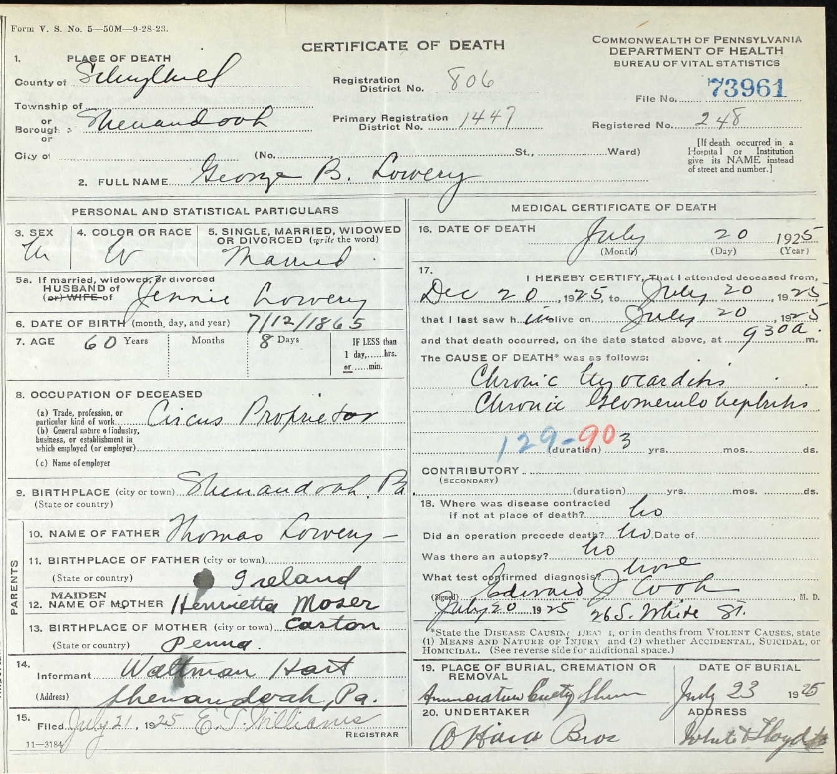 Form V. S. No. 5—50M—9-28-23.
CERTIFICATE OF DEATH
COMMONWEALTH OF PENNSYLVANIA
DEPARTMENT OF HEALTH
BUREAU OF VITAL STATISTICS
1. PLACE OF DEATH
County of Schuylkill
Registration District No. 806
File No. 73961
Township of
or
Borough Shenandoah
or
Primary Registration District No. 1447
Registered No. 248
City of (No. St., Ward)
[If death occurred in a Hospital or Institution give its NAME instead of street and number.]
2. FULL NAME George B. Lowery
PERSONAL AND STATISTICAL PARTICULARS
3. SEX M
4. COLOR OR RACE W
5. SINGLE, MARRIED, WIDOWED OR DIVORCED (write the word) Married
5a. If married, widowed, or divorced
HUSBAND of
(or) WIFE of Jennie Lowery
6. DATE OF BIRTH (month, day, and year) 7/12/1865
7. AGE 60 Years Months 8 Days IF LESS than 1 day,......hrs. or......min.
8. OCCUPATION OF DECEASED
(a) Trade, profession, or particular kind of work Circus Proprietor
(b) General nature of industry, business, or establishment in which employed (or employer)
(c) Name of employer
9. BIRTHPLACE (city or town) Shenandoah, Pa
(State or country)
PARENTS
10. NAME OF FATHER Thomas Lowery
11. BIRTHPLACE OF FATHER (city or town)
(State or country) Ireland
12. MAIDEN NAME OF MOTHER Henrietta Moser
13. BIRTHPLACE OF MOTHER (city or town) Easton
(State or country) Penna.
14. Informant Waltman Hart
(Address) Shenandoah, Pa.
15. Filed July 21, 1925 E. J. Williams REGISTRAR
11—3184
MEDICAL CERTIFICATE OF DEATH
16. DATE OF DEATH July 20 1925
(Month) (Day) (Year)
17. I HEREBY CERTIFY, That I attended deceased from,
Dec 20, 1925, to July 20, 1925
that I last saw him alive on July 20, 1925
and that death occurred, on the date stated above, at 9 30 a. m.
The CAUSE OF DEATH* was as follows:
Chronic Myocarditis
Chronic Glomerulo Nephritis
129-90
(duration) 3 yrs. mos. ds.
CONTRIBUTORY
(SECONDARY)
(duration) yrs. mos. ds.
18. Where was disease contracted
if not at place of death? no
Did an operation precede death? no Date of
Was there an autopsy? no
What test confirmed diagnosis? none
(Signed) Edward J Cook M. D.
July 20 1925 26 S. White St.
*State the DISEASE CAUSING DEATH, or in deaths from VIOLENT CAUSES, state
(1) MEANS AND NATURE OF INJURY, and (2) whether ACCIDENTAL, SUICIDAL, or
HOMICIDAL. (See reverse side for additional space.)
19. PLACE OF BURIAL, CREMATION OR REMOVAL
DATE OF BURIAL
July 23 1925
20. UNDERTAKER
O'Hara Bros
ADDRESS
White & Lloyd